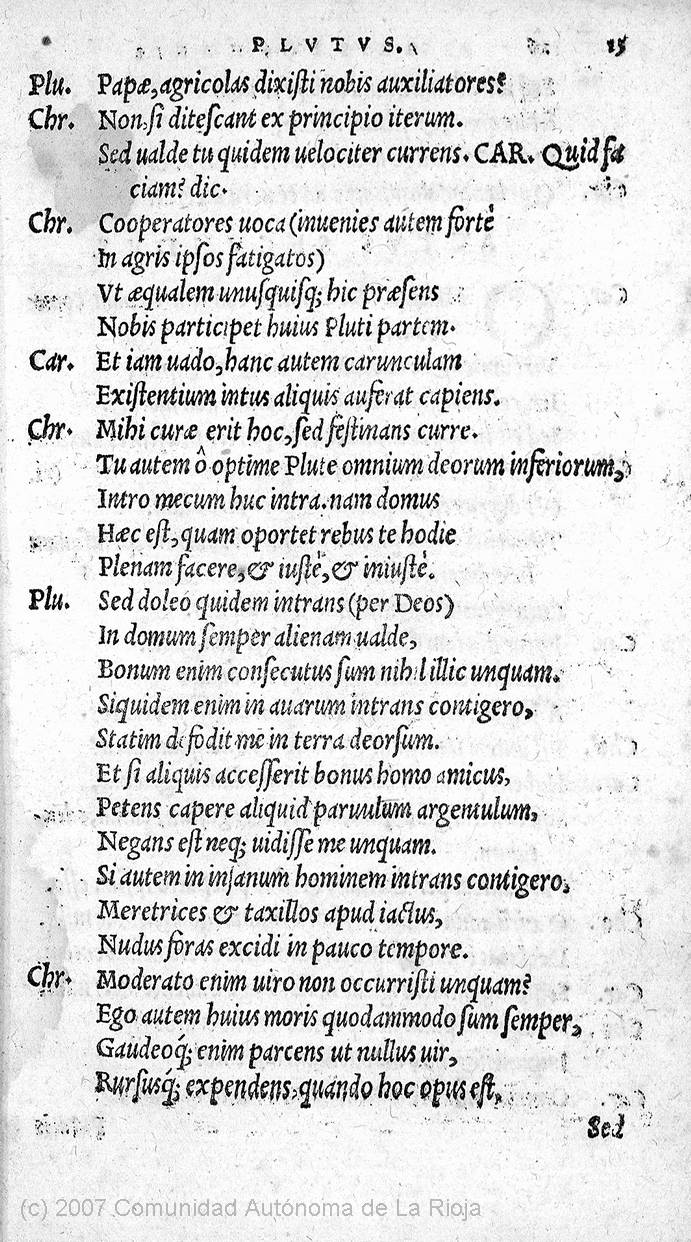 PLVTVS. 15
Plu. Papæ, agricolas dixisti nobis auxiliatores?
Chr. Non, si ditescant ex principio iterum.
Sed ualde tu quidem uelociter currens. CAR. Quid fa
ciam? dic.
Chr. Cooperatores uoca (inuenies autem fortè
In agris ipsos fatigatos)
Vt æqualem unusquisq; hic præsens
Nobis participet huius Pluti partem.
Car. Et iam uado, hanc autem carunculam
Existentium intus aliquis auferat capiens.
Chr. Mihi curæ erit hoc, sed festinans curre.
Tu autem ô optime Plute omnium deorum inferiorum,
Intro mecum huc intra. nam domus
Hæc est, quam oportet rebus te hodie
Plenam facere, & iustè, & iniustè.
Plu. Sed doleo quidem intrans (per Deos)
In domum semper alienam ualde,
Bonum enim consecutus sum nihil illic unquam.
Siquidem enim in auarum intrans contigero,
Statim defodit me in terra deorsum.
Et si aliquis accesserit bonus homo amicus,
Petens capere aliquid paruulum argentulum,
Negans est neq; uidisse me unquam.
Si autem in insanum hominem intrans contigero,
Meretrices & taxillos apud iactus,
Nudus foras excidi in pauco tempore.
Chr. Moderato enim uiro non occurristi unquam?
Ego autem huius moris quodammodo sum semper,
Gaudeoq́; enim parcens ut nullus uir,
Rursusq́; expendens, quando hoc opus est,
Sed
(c) 2007 Comunidad Autónoma de La Rioja